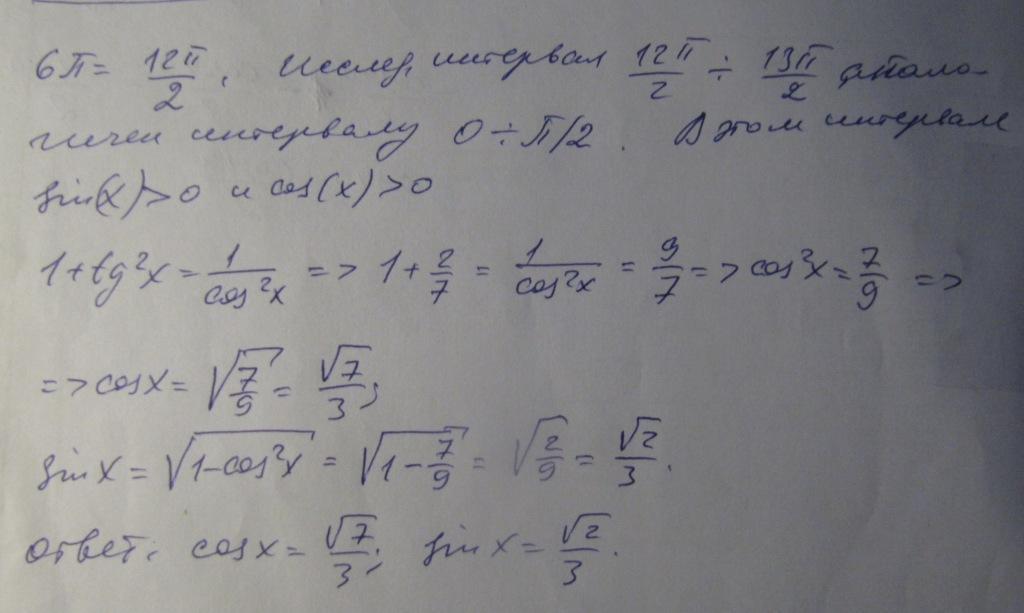 6π = 12π/2. Исслед. интервал 12π/2 ÷ 13π/2 анало-
гичен интервалу 0 ÷ π/2. В этом интервале
sin(x) > 0 и cos(x) > 0
1 + tg²x = 1/cos²x => 1 + 2/7 = 1/cos²x = 9/7 => cos²x = 7/9 =>
=> cosx = √(7/9) = √7/3;
sin x = √(1 - cos²x) = √(1 - 7/9) = √(2/9) = √2/3.
ответ: cosx = √7/3; sin x = √2/3.